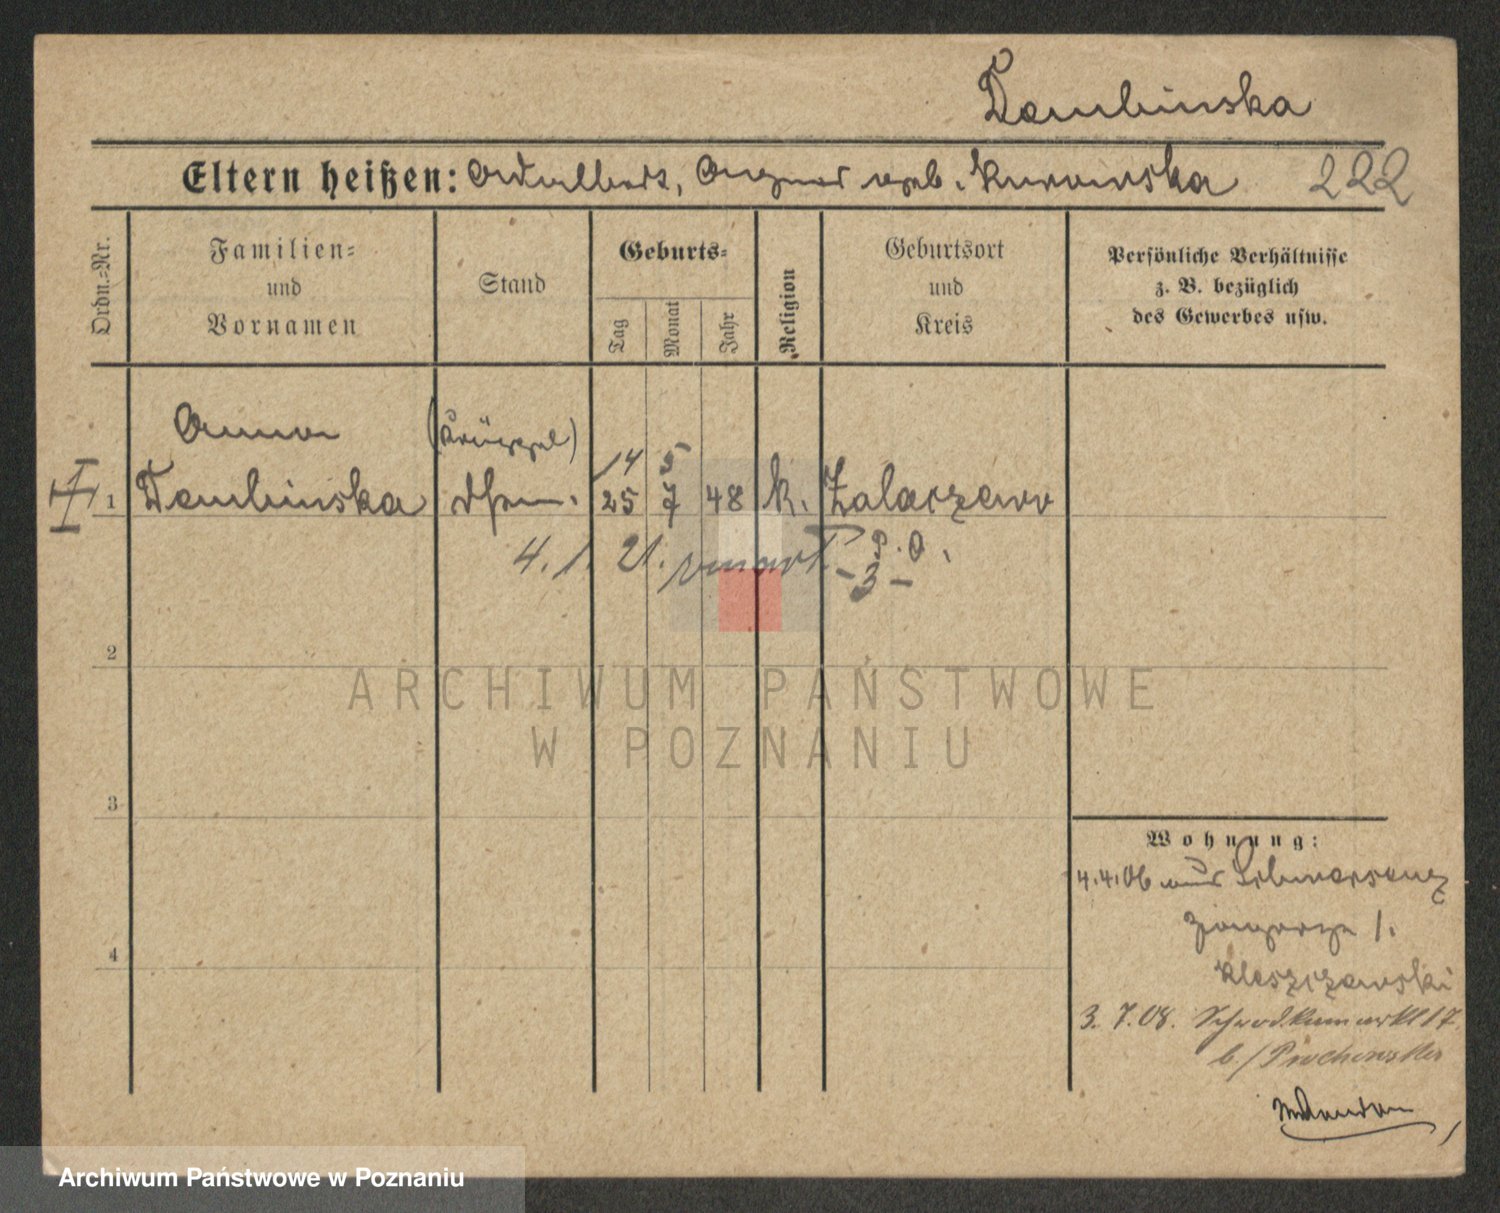 Dembinska
Eltern heißen: Adalbert, Agnes geb. Kurowska 222
Ordn.=Nr.
Familien=
und
Vornamen
Stand
Geburts=
Tag
Monat
Jahr
Religion
Geburtsort
und
Kreis
Persönliche Verhältnisse
z. B. bezüglich
des Gewerbes usw.
Anna (Krüppel) 14 5
1 Dembinska 25 7 48 k. Zalaczewo
4. 1. 21.
2
3
4
Wohnung:
4.4.06 aus Schwersenz
1.
Kleszczewski
3. 7. 08. Schrodkamarkt 17
b./
ARCHIWUM PAŃSTWOWE
W POZNANIU
Archiwum Państwowe w Poznaniu